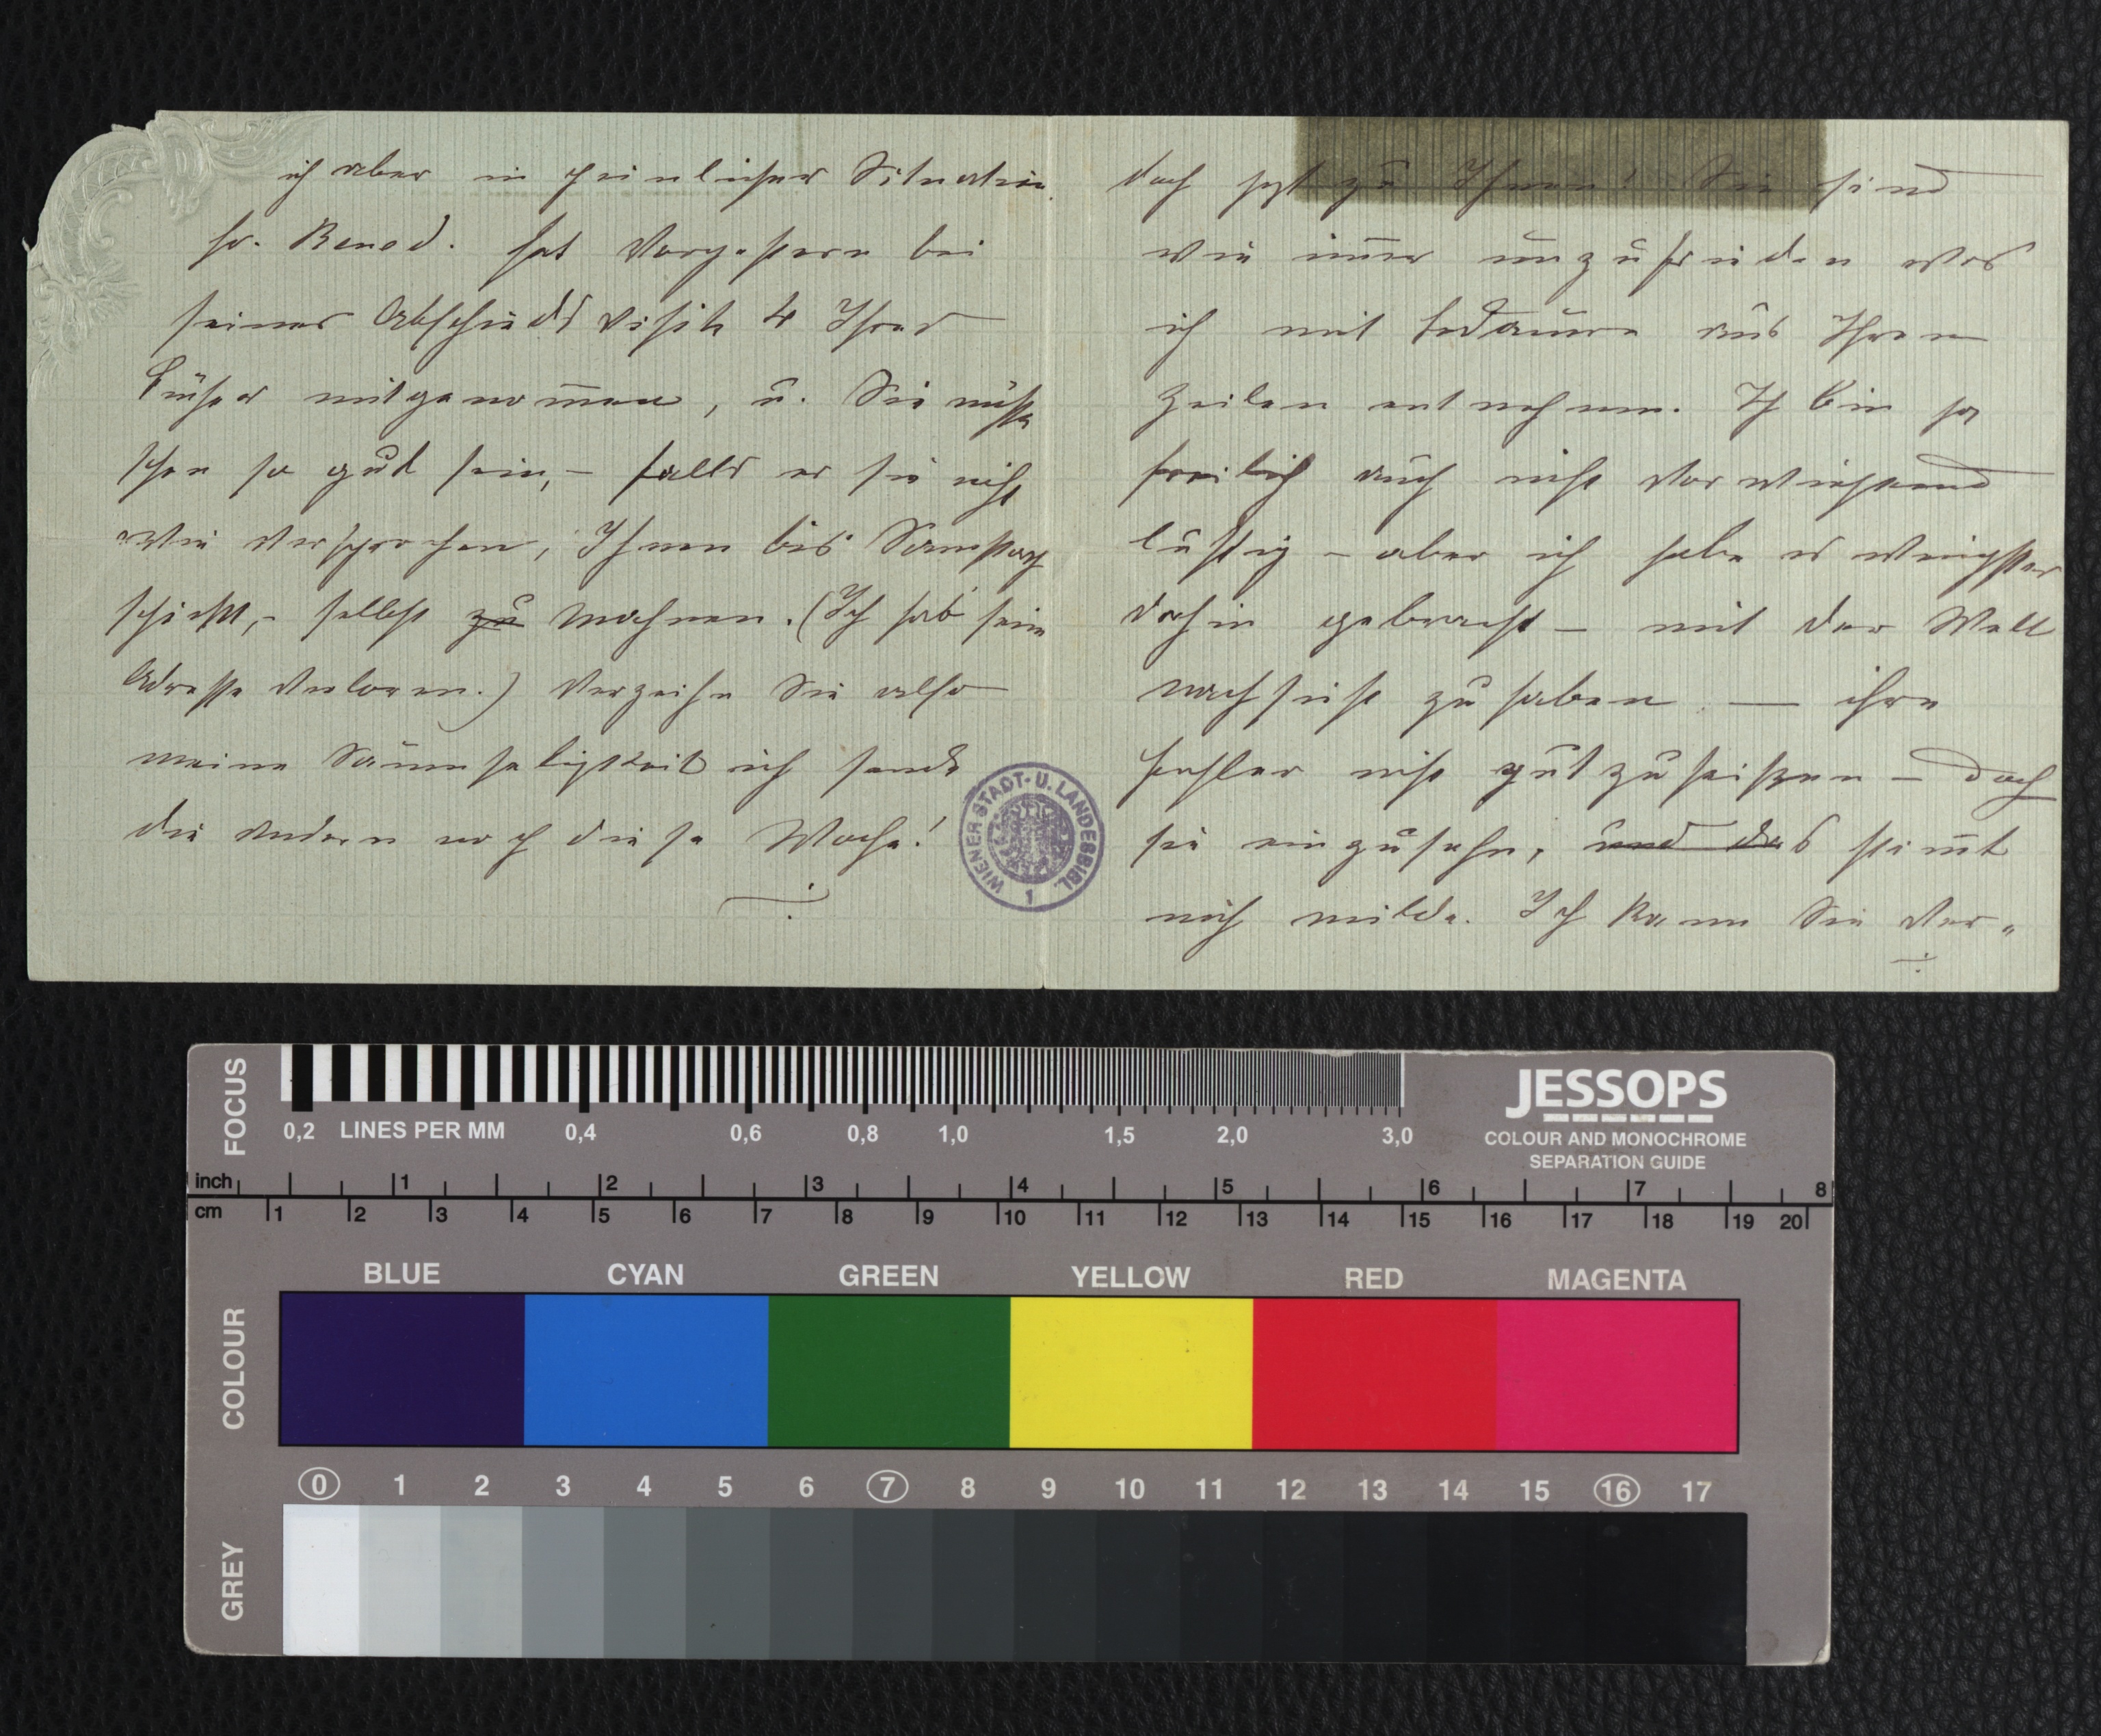 ich aber in peinlicher Situation.
Hr. Bened. hat vorgestern bei
seiner Abschieds visite 4 Ihrer
Bücher mitgenommen, u. Sie müssen
schon so gut sein, – falls er sie nicht
wie versprochen, Ihnen bis Samstag
schickt, – selbst zu mahnen. (Ich hab' seine
Adresse verloren.) Verzeihn Sie also
meine Saumseligkeit ich sende
die andern noch diese Woche!
doch jetzt zu Ihnen! Sie sind
wie immer unzufrieden was
ich mit bedauern aus Ihren
Zeilen entnehme. Ich bin ja
freilich auch nicht vorwiegend
lustig – aber ich habe es wenigstens
dahin gebracht – mit der Welt
nachsicht zu haben – ihre
Fehler nicht gutzuheißen – doch
sie einzusehn, und das stimmt
mich milde. Ich kann Sie ver-
WIENER STADT- U. LANDESBIBL.
1
FOCUS
0,2 LINES PER MM 0,4 0,6 0,8 1,0 1,5 2,0 3,0
JESSOPS
COLOUR AND MONOCHROME
SEPARATION GUIDE
inch 1 2 3 4 5 6 7 8
cm 1 2 3 4 5 6 7 8 9 10 11 12 13 14 15 16 17 18 19 20
COLOUR
BLUE CYAN GREEN YELLOW RED MAGENTA
0 1 2 3 4 5 6 7 8 9 10 11 12 13 14 15 16 17
GREY